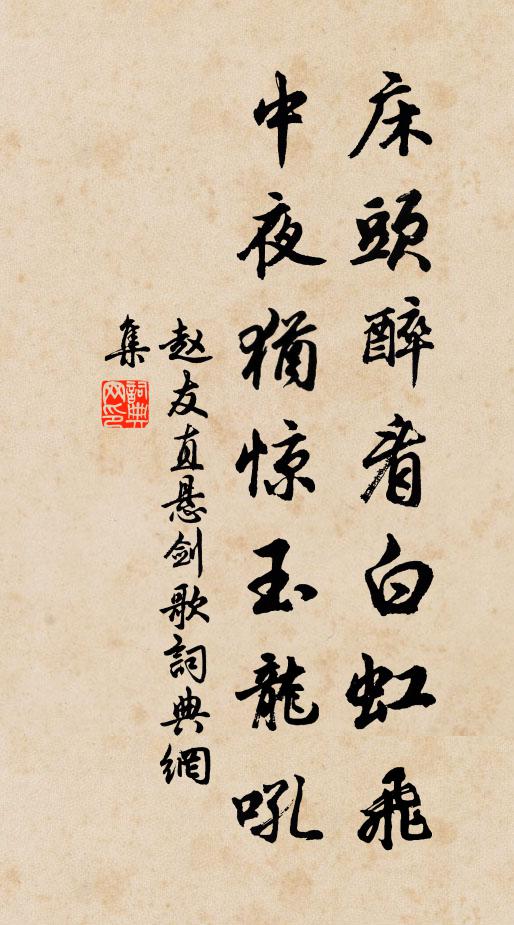 床頭醉看白虹飛
中夜猶惊玉龍吼
赵友直悬劍歌詞典網
集
詞典网印